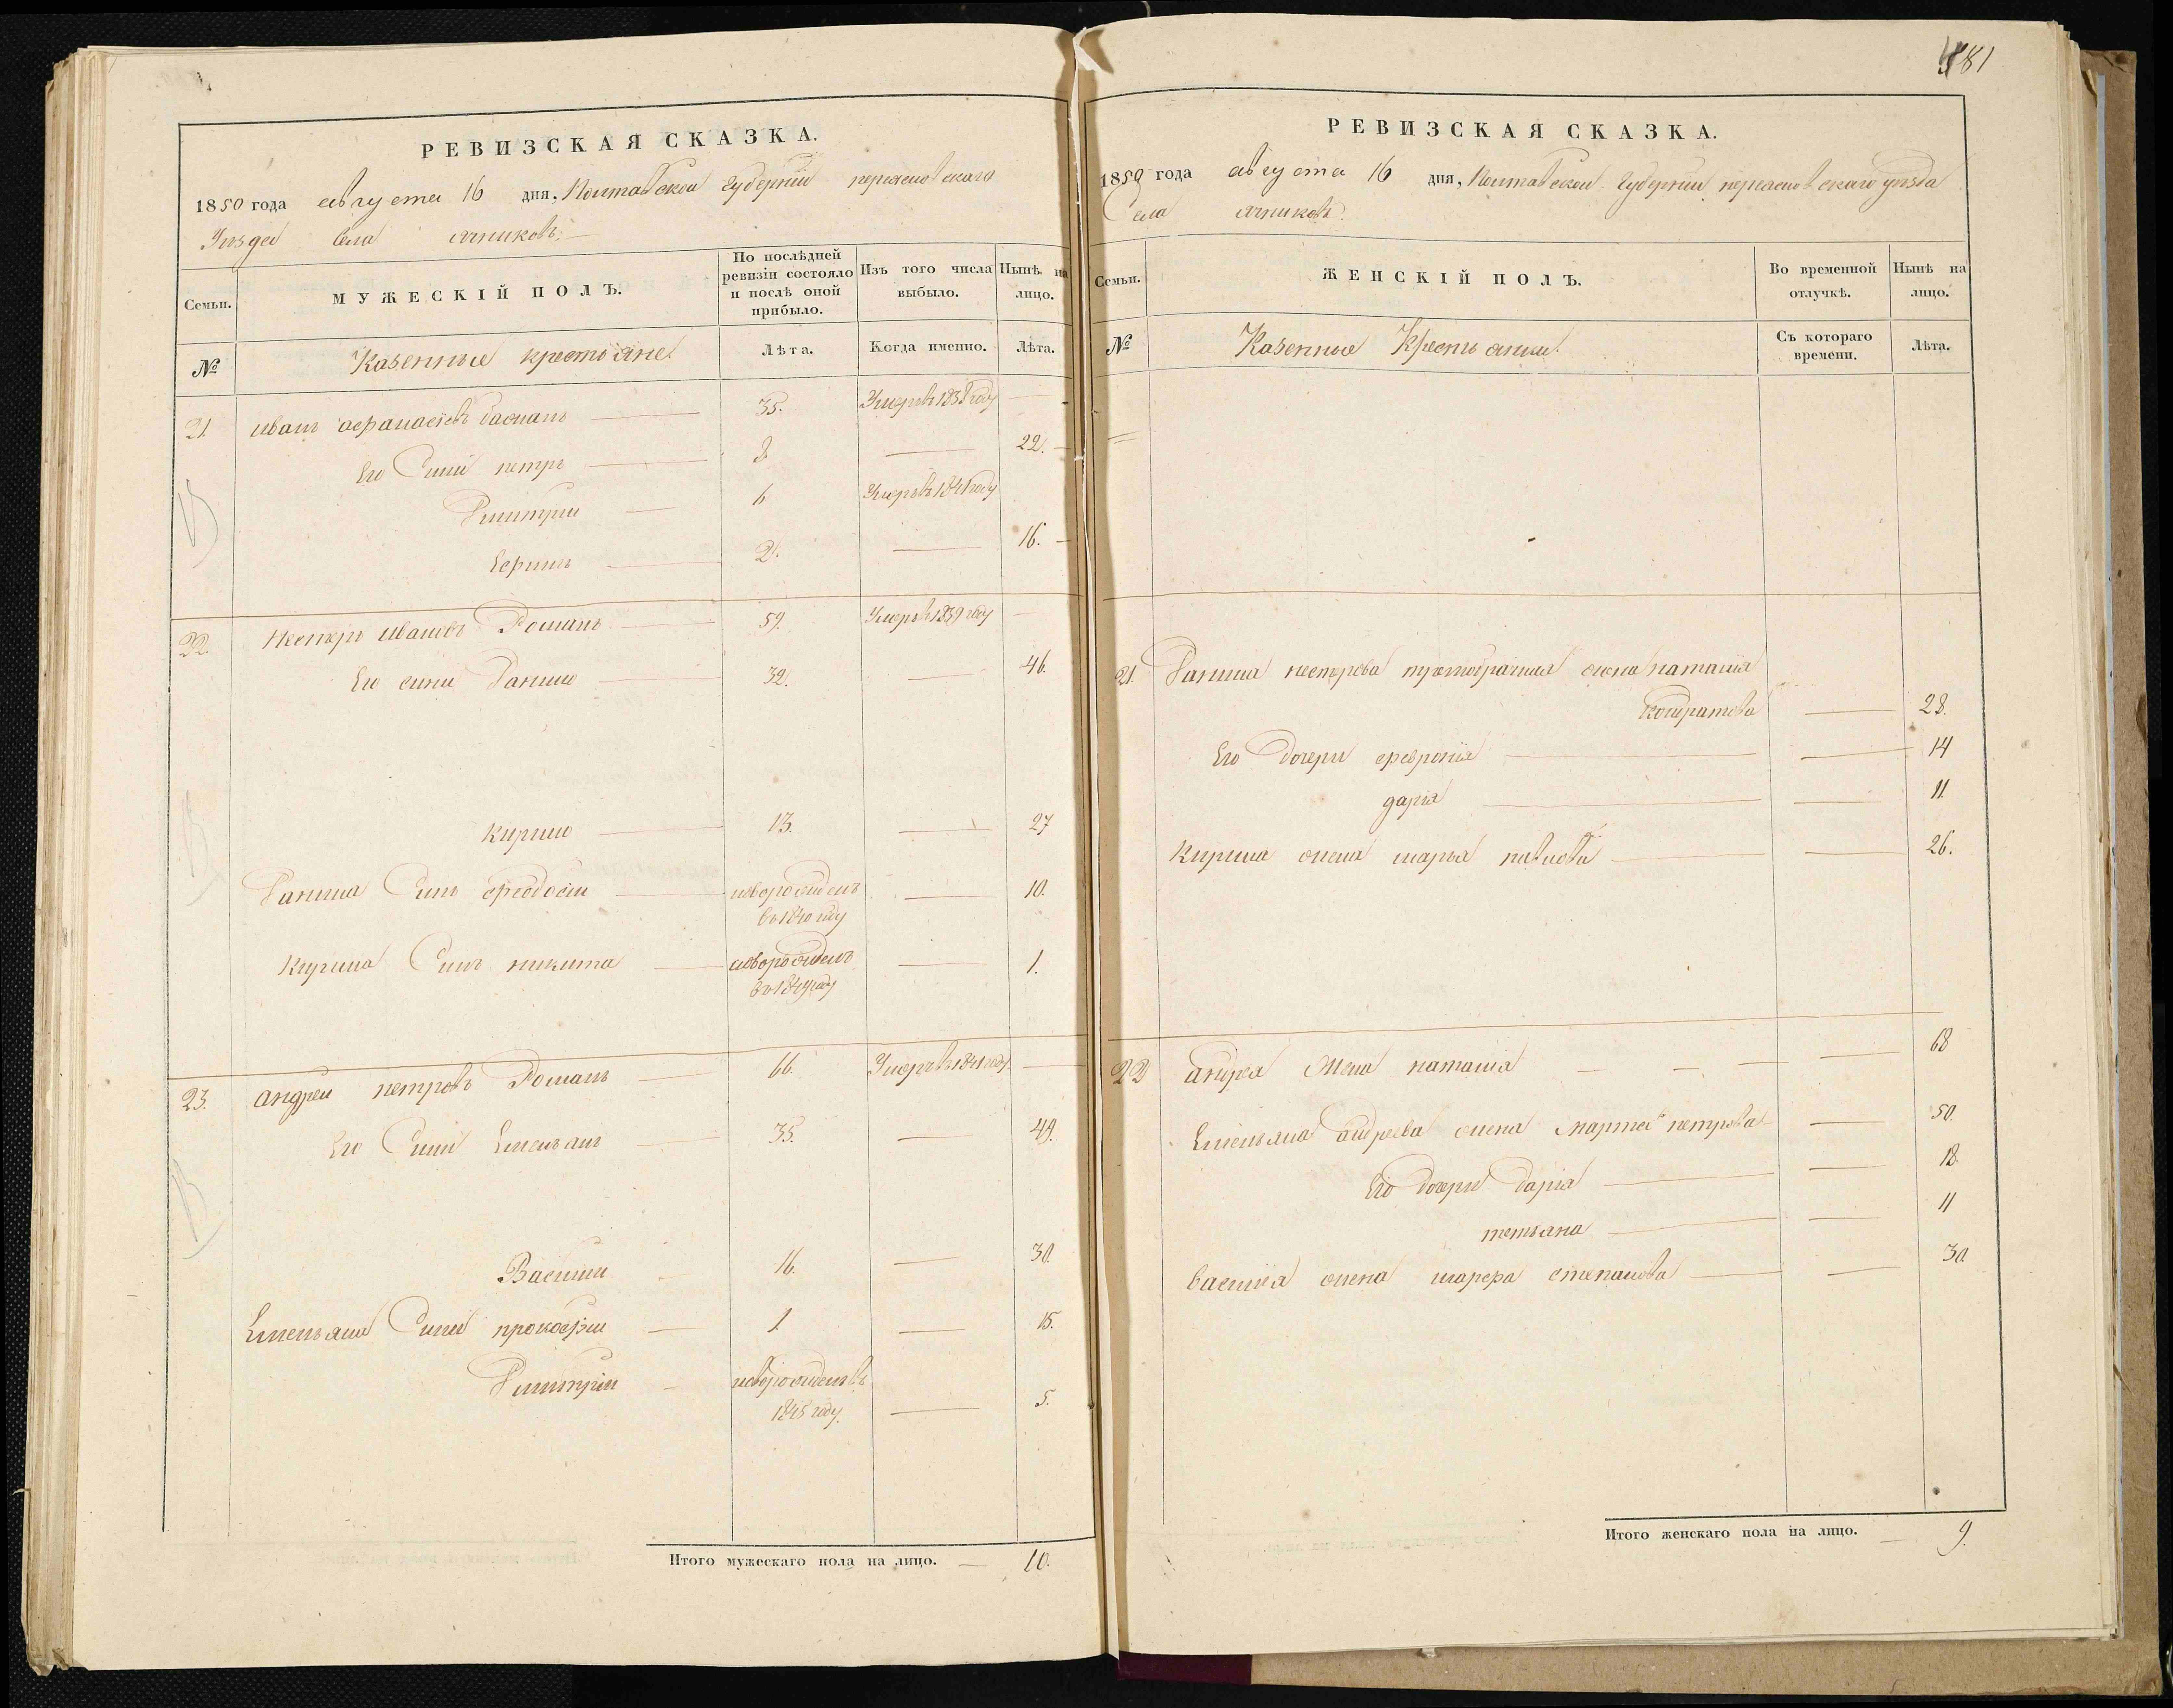 РЕВИЗСКАЯ СКАЗКА.
1850 года августа 16 дня, Полтавской губернии переяславскаго
Уезда Села
Семьи.
МУЖЕСКІЙ ПОЛЪ.
По послѣдней ревизіи состояло и послѣ оной прибыло.
Изъ того числа выбыло.
Нынѣ на лицо.
№
Казенные крестьяне.
Лѣта.
Когда именно.
Лѣта.
21 иванъ афанасіевъ 35. Умеръ въ 1838 году —
Его Сини петръ — 8 — 22.
Димитрии — 6 Умеръ въ 1841 году
Ефимъ — 2. — 16.
22. Нестеръ ивановъ Романъ — 59. Умеръ въ 1839 году —
Его сини Данило — 32. — 46.
Кирило — 13. — 27
Данила Синъ феодосіи — новорожденъ — 10.
въ 1840 году
Кирила Синъ никита — новорожденъ — 1.
въ 1849 году
23. андреи петровъ Романъ — 66. Умеръ въ 1841 году —
Его Сини Емельянъ — 35. — 49.
Василии 16. — 30.
Емельяна Сини прокофіи — 1. — 15.
Димитріи — новорожденъ въ
1845 году. — 5.
Итого мужескаго пола на лицо. — 10.
581
РЕВИЗСКАЯ СКАЗКА.
1850 года августа 16 дня, Полтавской Губернии переяславскаго уезда
Села
Семьи.
ЖЕНСКІЙ ПОЛЪ.
Во временной отлучкѣ.
Нынѣ на лицо.
№
Казенные Крестьянки.
Съ котораго времени.
Лѣта.
21. Данила нестерова жена наталия
кондратова — 28.
Его Дочери феврония — — 14
дария — — 11.
Кирила жена марья павлова — — 26.
22 андрея жена наталия — — — — 68
Емельяна андреева жена марта петрова — — 50.
Его дочери дария — — 18.
татьяна — — 11
василия жена марфа степанова — — 30.
Итого женскаго пола на лицо. — 9.